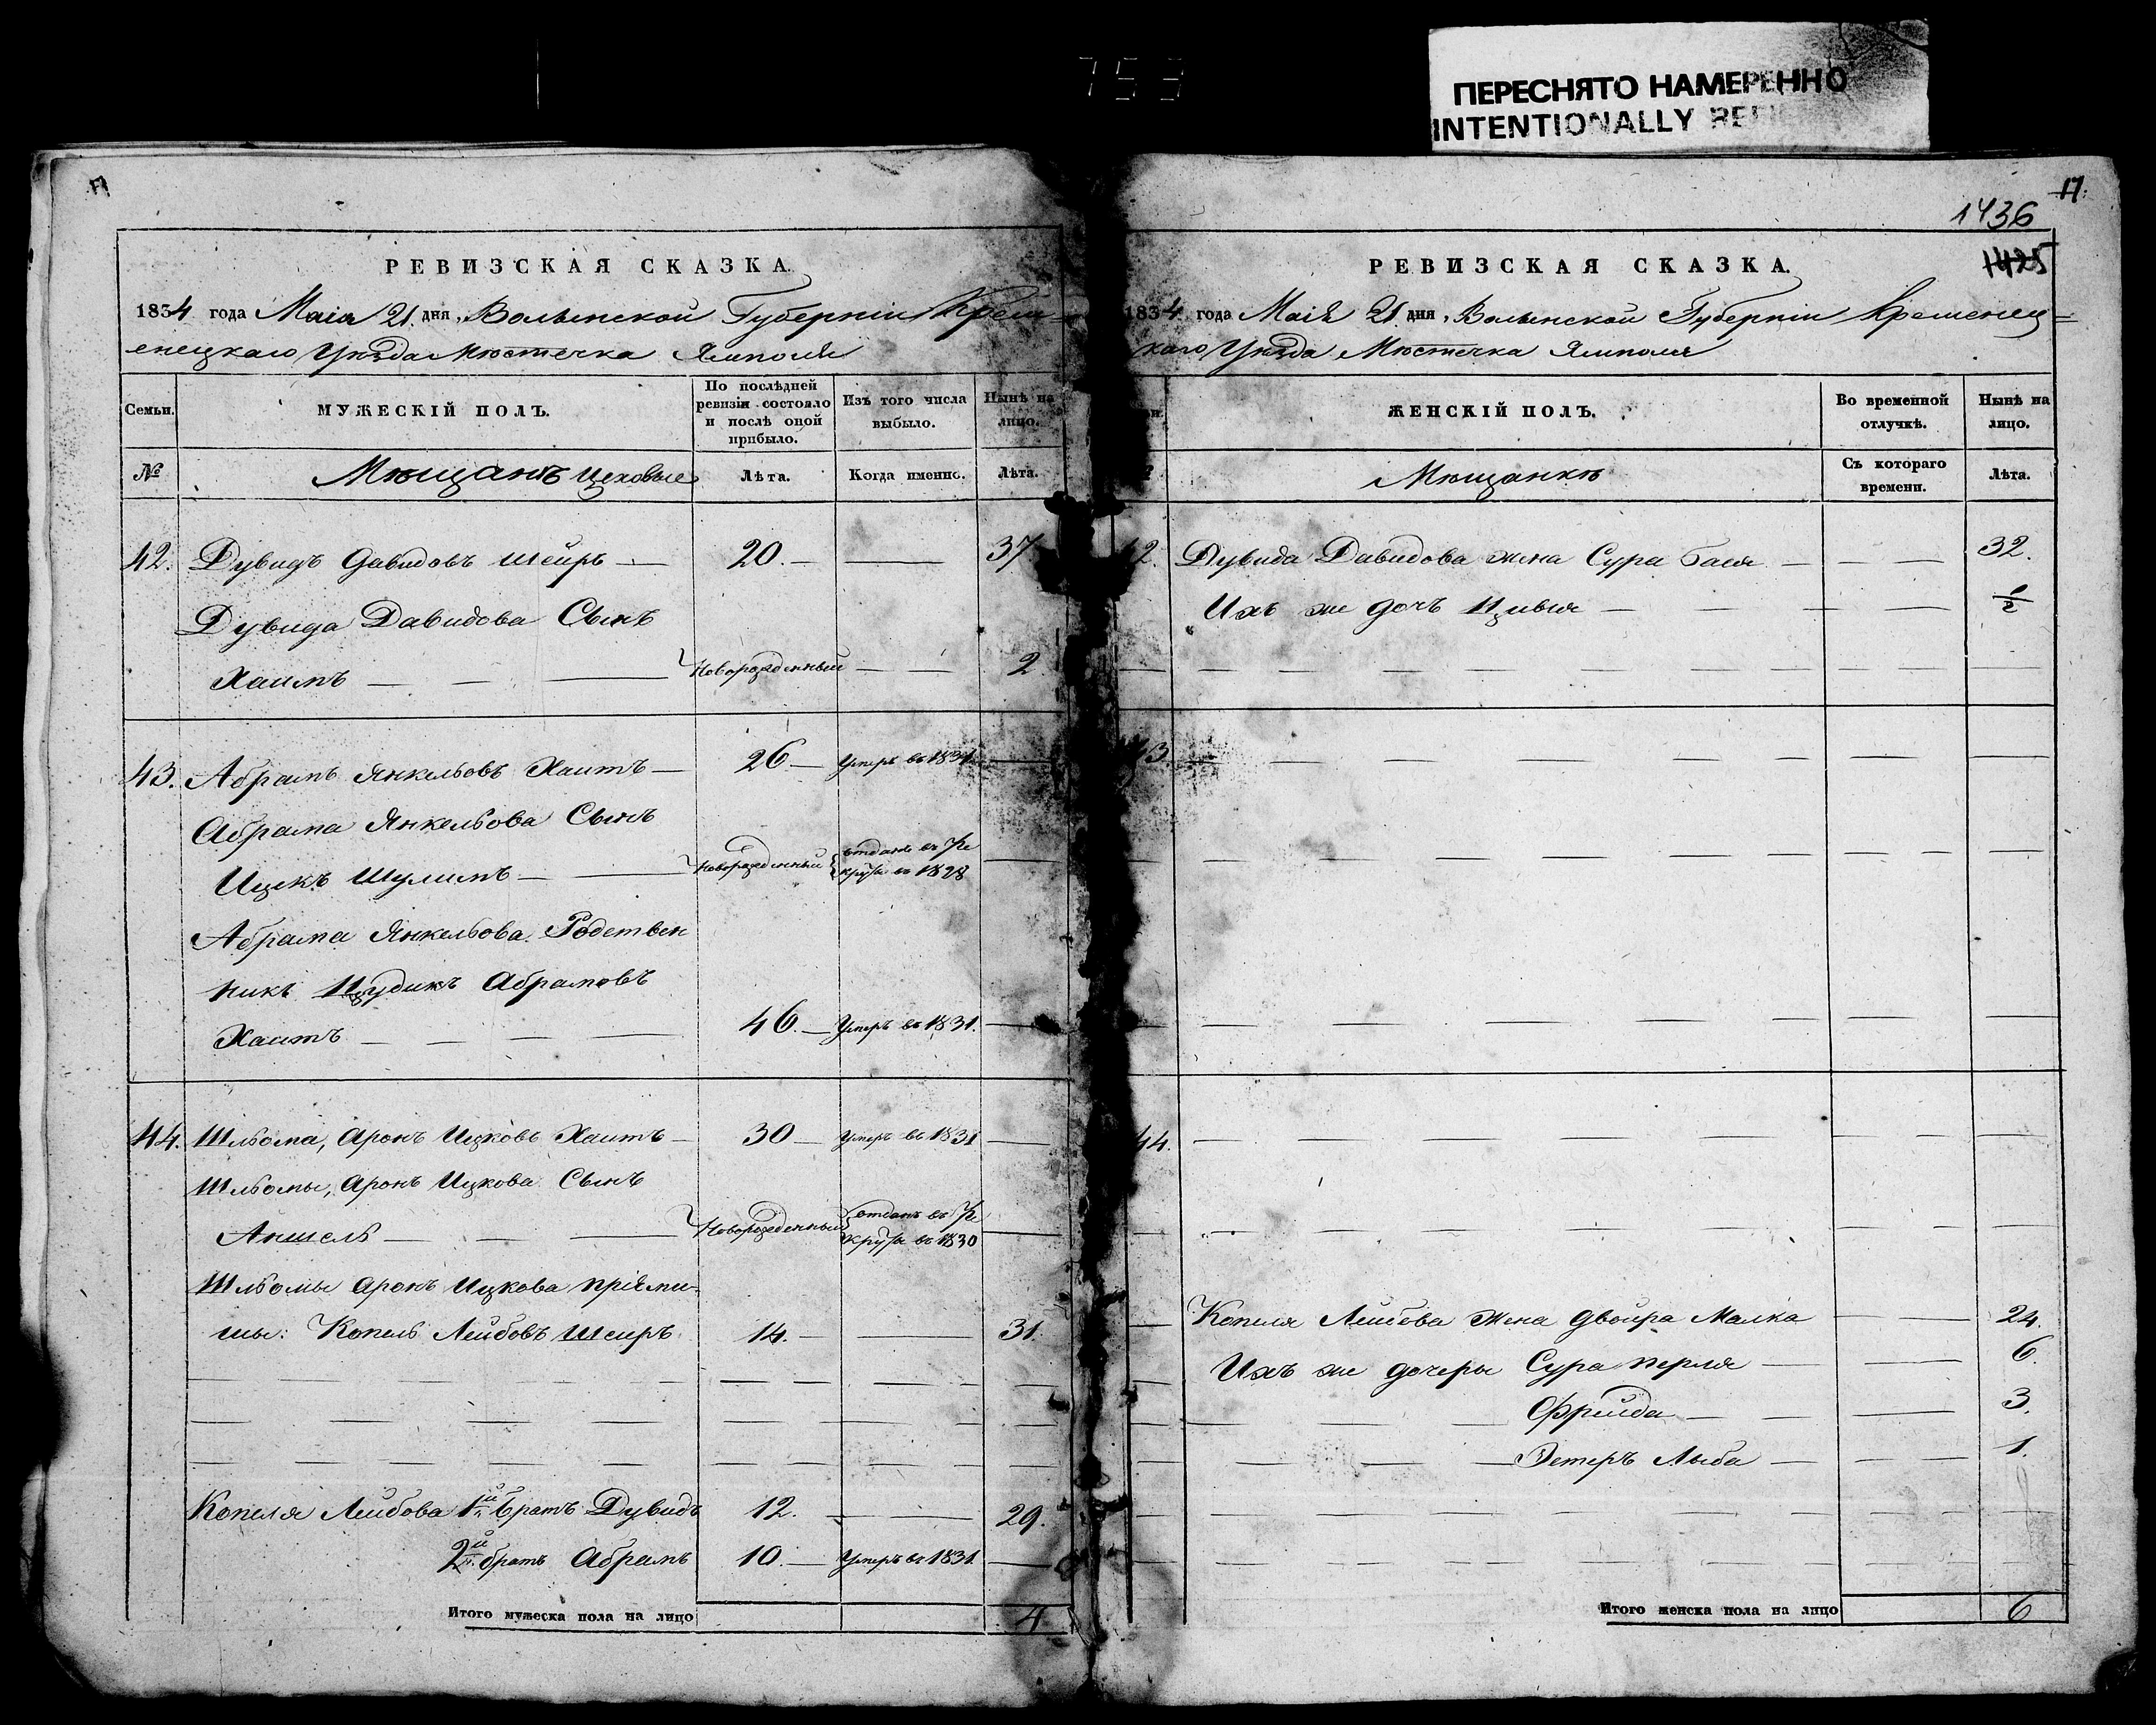 753
ПЕРЕСНЯТО НАМЕРЕННО
INTENTIONALLY
17
РЕВИЗСКАЯ СКАЗКА.
1834 года Маія 21 дня, Волынской Губерніи Крем-
енецкаго Уѣзда Мѣстечка Ямполя
Семьи.
МУЖЕСКІЙ ПОЛЪ.
По послѣдней ревизіи состояло и послѣ оной прибыло.
Изъ того числа выбыло.
Нынѣ на лицо.
№
Мѣщанъ цеховые
Лѣта.
Когда именно.
Лѣта.
42. Дувидъ Давидовъ Шеиръ — 20. — — 37
Дувида Давидова Сынъ
Хаимъ — Новорожденный — 2
43. Абрамъ Янкельовъ Хаитъ — 26 — умеръ въ 1831 —
Абрама Янкельова Сынъ
Ицекъ Шулимъ — Новорожденный отданъ въ Ре
круты въ 1828 —
Абрама Янкельова Родствен
никъ Цудикъ Абрамовъ
Хаитъ — 46. — Умеръ въ 1831. —
44. Шльома, Аронъ Ицковъ Хаитъ — 30 — умеръ въ 1831 —
Шльомы, Аронъ Ицкова Сынъ
Аншель — Новорожденный отданъ въ Ре
круты въ 1830 —
Шльомы Аронъ Ицкова пріеми-
шы: Копель Лейбовъ Шеиръ 14. — 31.
Копеля Лейбова 1й братъ Дувидъ 12. — 29.
2й братъ Абрамъ 10. — Умеръ въ 1831. —
Итого мужеска пола на лицо 4
17.
1436
1425
РЕВИЗСКАЯ СКАЗКА.
1834 года Маія 21 дня, Волынской Губерніи Кременец=
каго Уѣзда Мѣстечка Ямполя
ЖЕНСКІЙ ПОЛЪ.
Во временной отлучкѣ.
Нынѣ на лицо.
Мѣщанкѣ
Съ котораго времени.
Лѣта.
42. Дувида Давидова жена Сура Бася — — 32.
Ихъ же дочь Цивья — — 1/2
43.
44.
Копеля Лейбова Жена Двойра Малка — 24.
Ихъ же дочеры Сура перля — 6.
Фрейда — 3.
Эстеръ Лыба — 1.
Итого женска пола на лицо 6